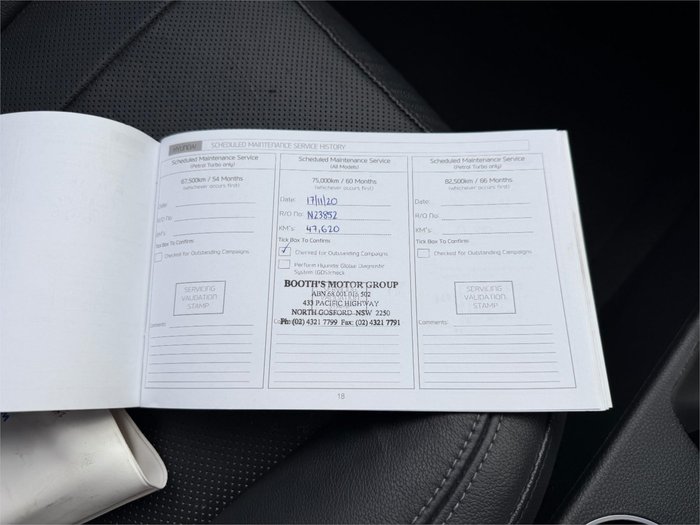 HYUNDAI SCHEDULED MAINTENANCE SERVICE HISTORY
Scheduled Maintenance Service
(Petrol Turbo only)
67,500km / 54 Months
(whichever occurs first)
Date:
R/O No:
KM's:
Tick Box To Confirm
Checked for Outstanding Campaigns
SERVICING
VALIDATION
STAMP
Comments:
Scheduled Maintenance Service
(All Models)
75,000km / 60 Months
(whichever occurs first)
Date: 17/11/20
R/O No: N23852
KM's: 47,620
Tick Box To Confirm
Checked for Outstanding Campaigns
Perform Hyundai Global Diagnostic
System (GDS) check
BOOTH'S MOTOR GROUP
ABN 68 001 016 502
433 PACIFIC HIGHWAY
NORTH GOSFORD NSW 2250
Ph: (02) 4321 7799 Fax: (02) 4321 7791
Scheduled Maintenance Service
(Petrol Turbo only)
82,500km / 66 Months
(whichever occurs first)
Date:
R/O No:
KM's:
Tick Box To Confirm
Checked for Outstanding Campaigns
SERVICING
VALIDATION
STAMP
Comments:
18